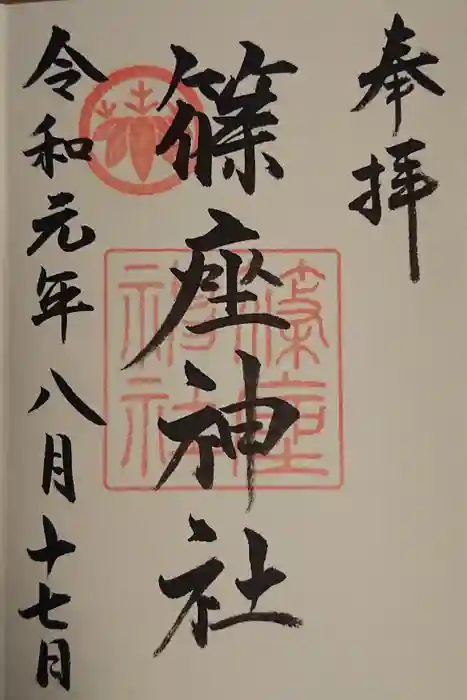 奉拝
篠座神社
篠座神社
令和元年八月十七日